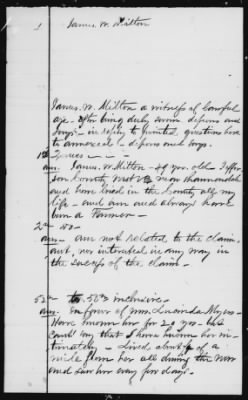 1 James W. Milton
James W. Milton a witness of lawful
age - after being duly sworn deposes and
says - in reply to printed questions here
to annexed - deposes and says.
1st
ans. James W. Milton - 39 yrs. old Jeffer
son County West Va near Shannondale
and have lived in the County all my
life - and am and always have
been a Farmer -
2nd
ans - am not related to the claim
ant, nor interested in any way in
the success of the claim -
52nd to 56th inclusive -
ans. In favor of Mrs. Lucinda Myers -
Have known her for 20 yrs - but
cant say that I have known her in
timately - Lived about of a
mile from her all during the War
and saw her every few days.